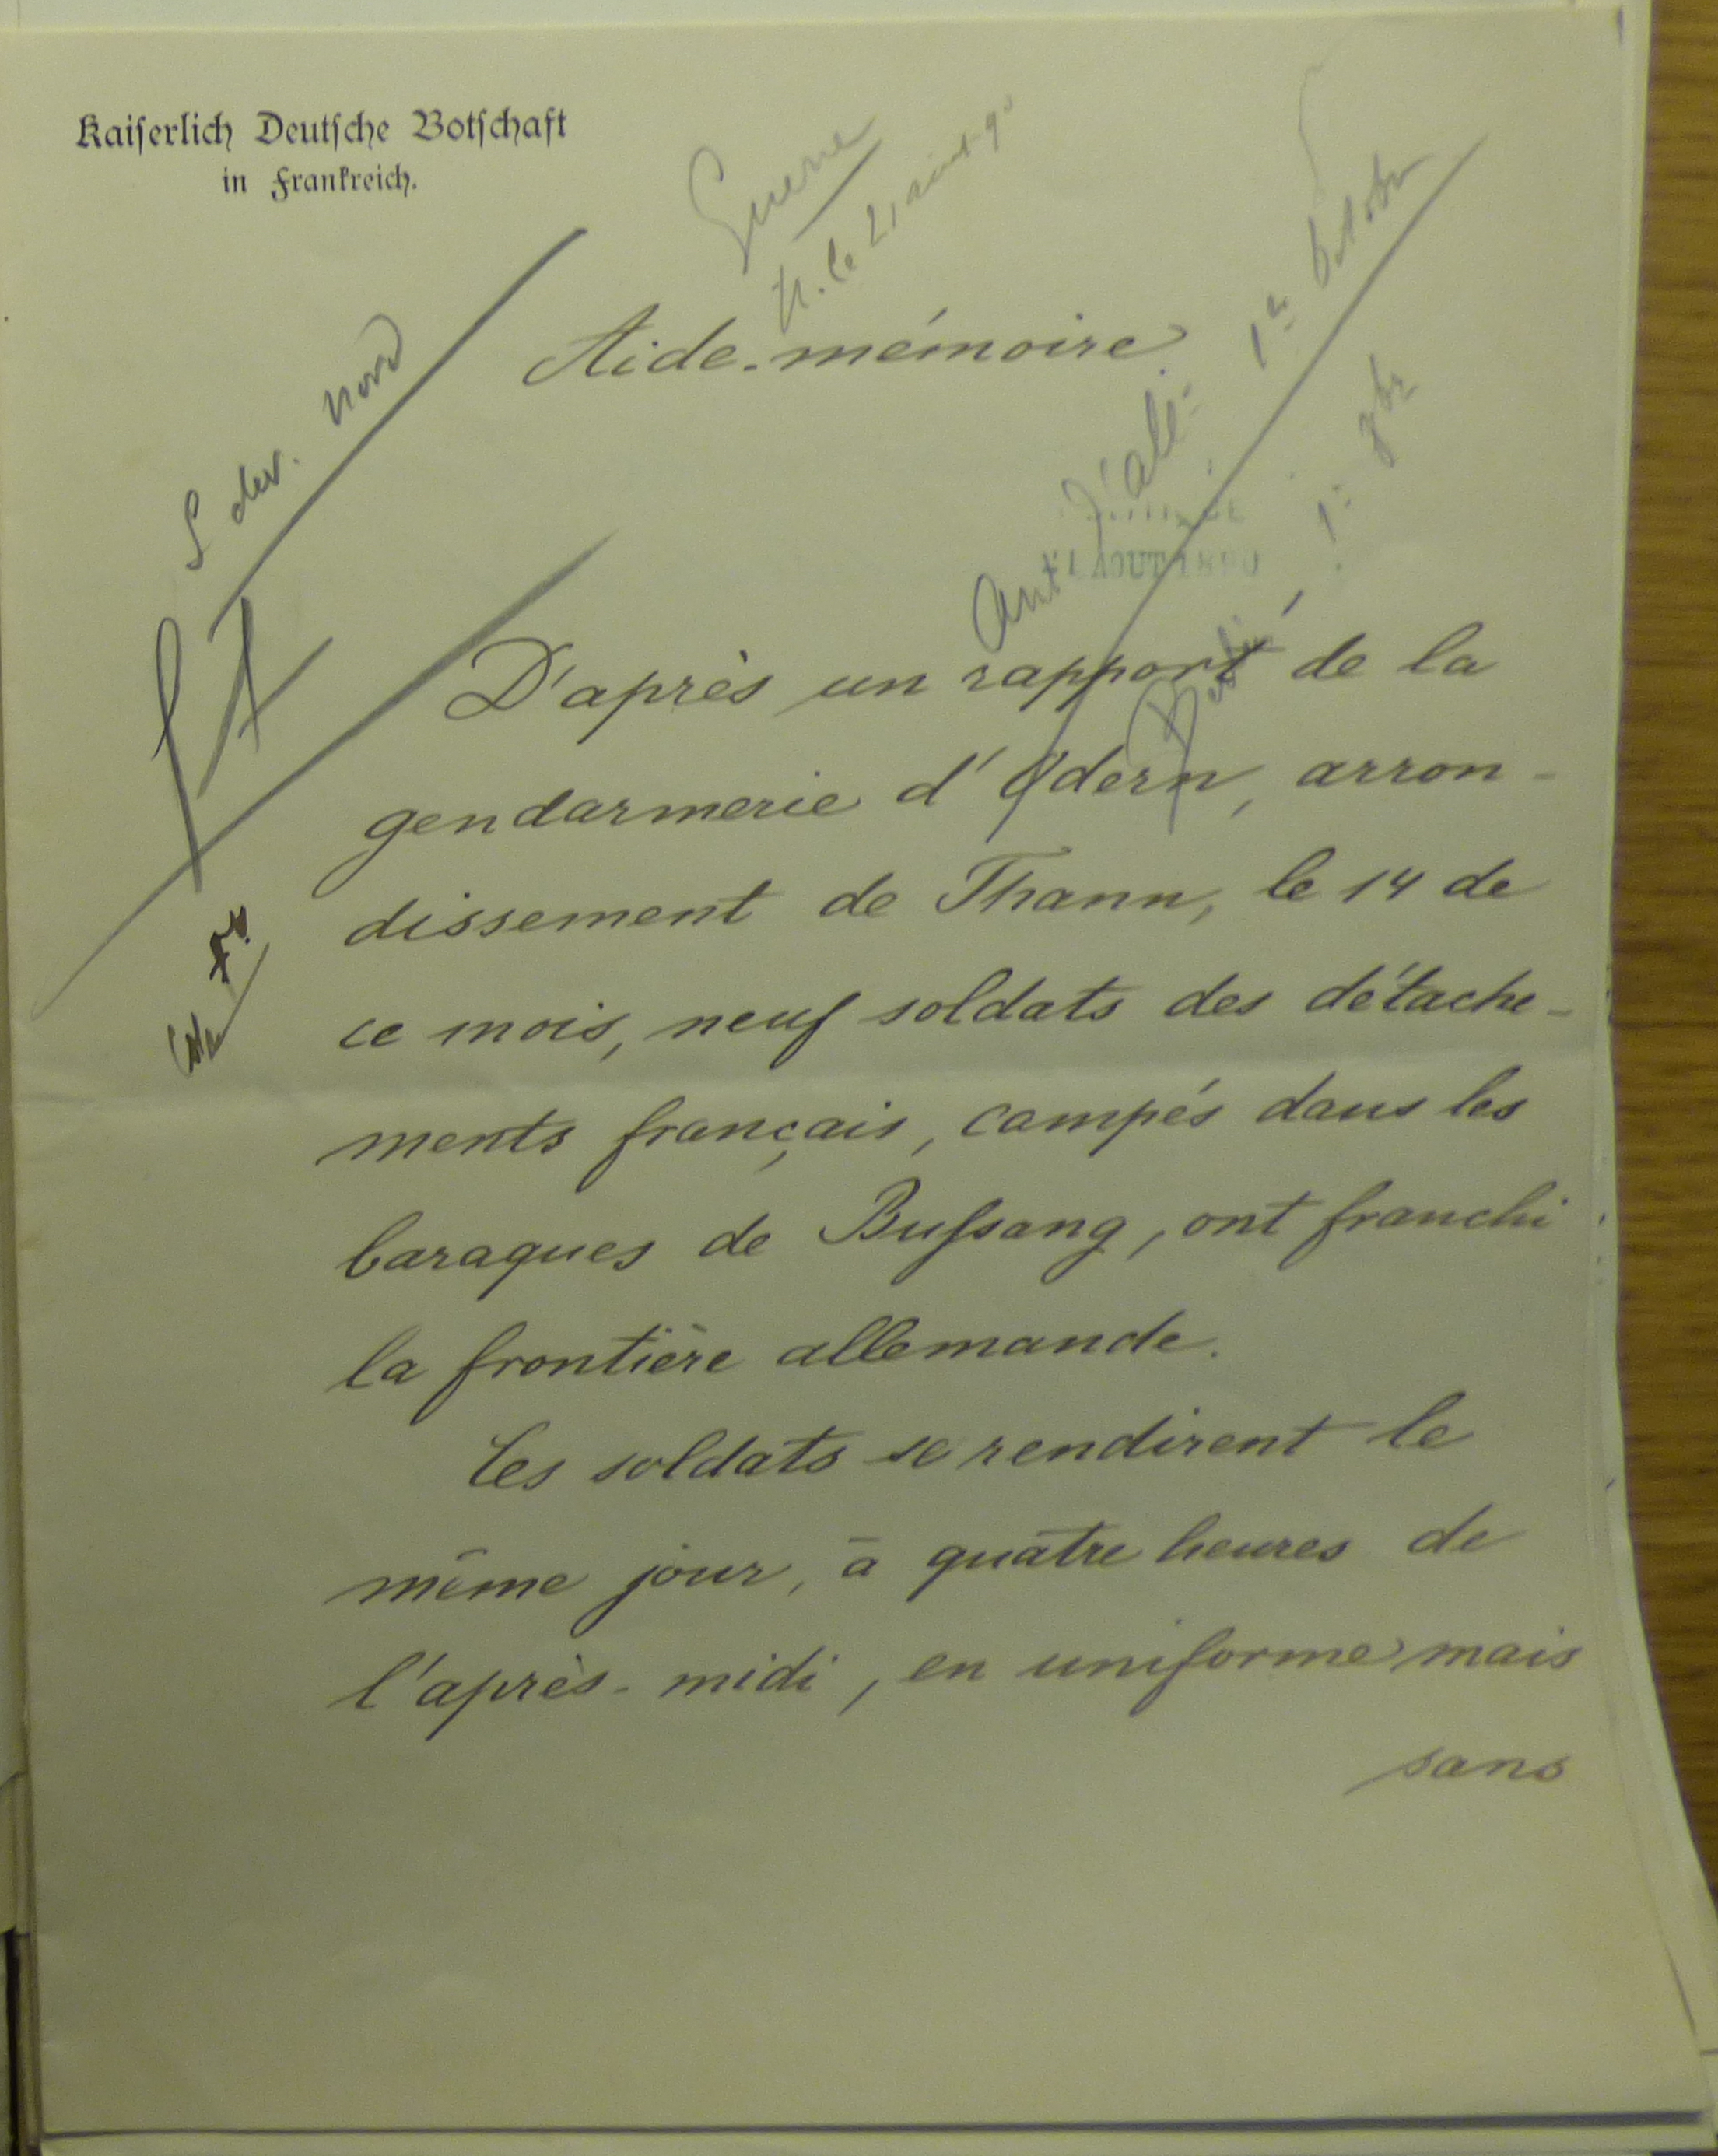 Kaiserlich Deutsche Botschaft
in Frankreich.
Guerre
le 21 août 90
Aide-mémoire.
1er Octobre
S. der. Nord
AOUT 1890
D'après un rapport de la
gendarmerie d'Odern, arron-
dissement de Thann, le 14 de
ce mois, neuf soldats des détache-
ments français, campés dans les
baraques de Bussang, ont franchi
la frontière allemande.
Ces soldats se rendirent le
même jour, à quatre heures de
l'après-midi, en uniforme mais
sans